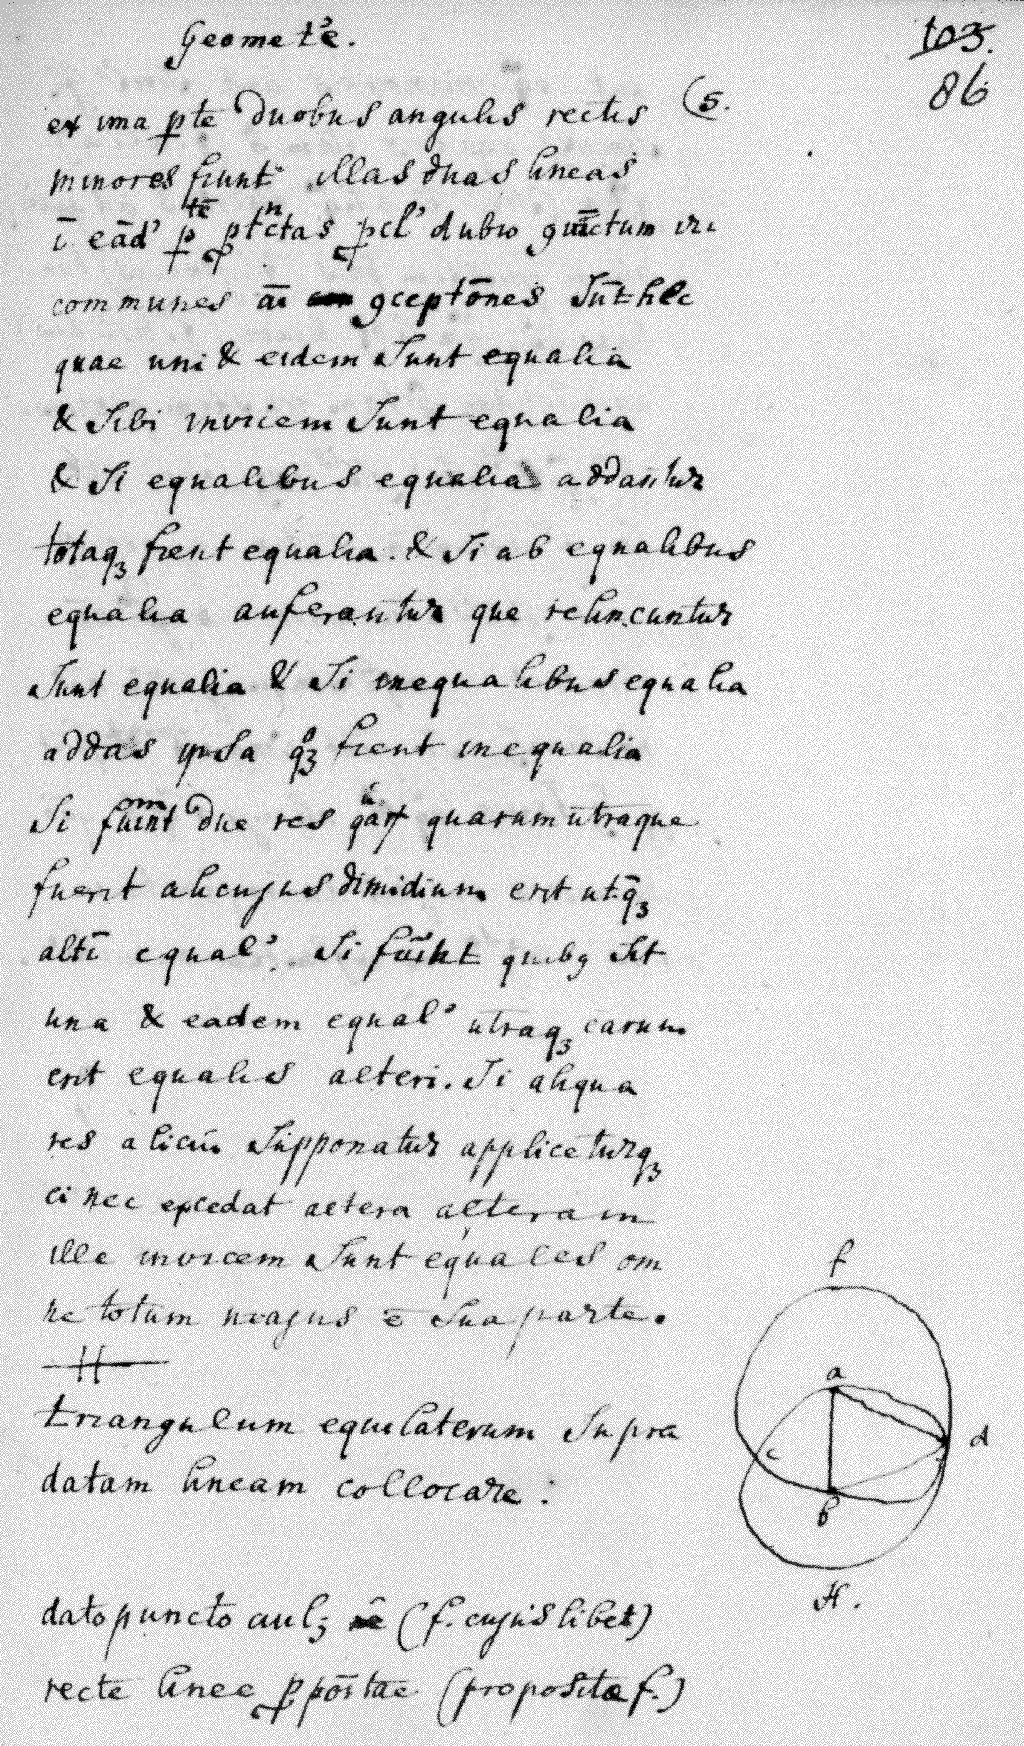 Geometrē.
103.
86
ex una pte duobus angulis rectis (5.
minores fiunt illas duas lineas
ī eād' p ptctas pcl' dubio 9uīctum iri
communes āi 9ceptōnes Sūt hec
quae uni & eidem Sunt equalia
& Sibi invicem Sunt equalia
& Si equalibus equalia addantur
totaq3 fient equalia. & Si ab equalibus
equalia auferantur que relincuntur
Sunt equalia & Si inequalibus equalia
addas ipsa q°3 fient inequalia
Si fuint due res quarum utraque
fuerit alicujus dimidium erit utq̄3
altī equal'. Si fūint quibq Sit
una & eadem equal' utraq3 earum
erit equalis alteri. Si aliqua
res alicui Supponatur appliceturq3
ei nec excedat altera alteram
ille invicem Sunt equales om
ne totum magus ē Sua parte.
triangulum equilaterum Supra
datam lineam collocare.
f
a
c
d
b
H.
dato puncto cul3 (f. cujuslibet)
recte linee ppōitae (propositae f.)